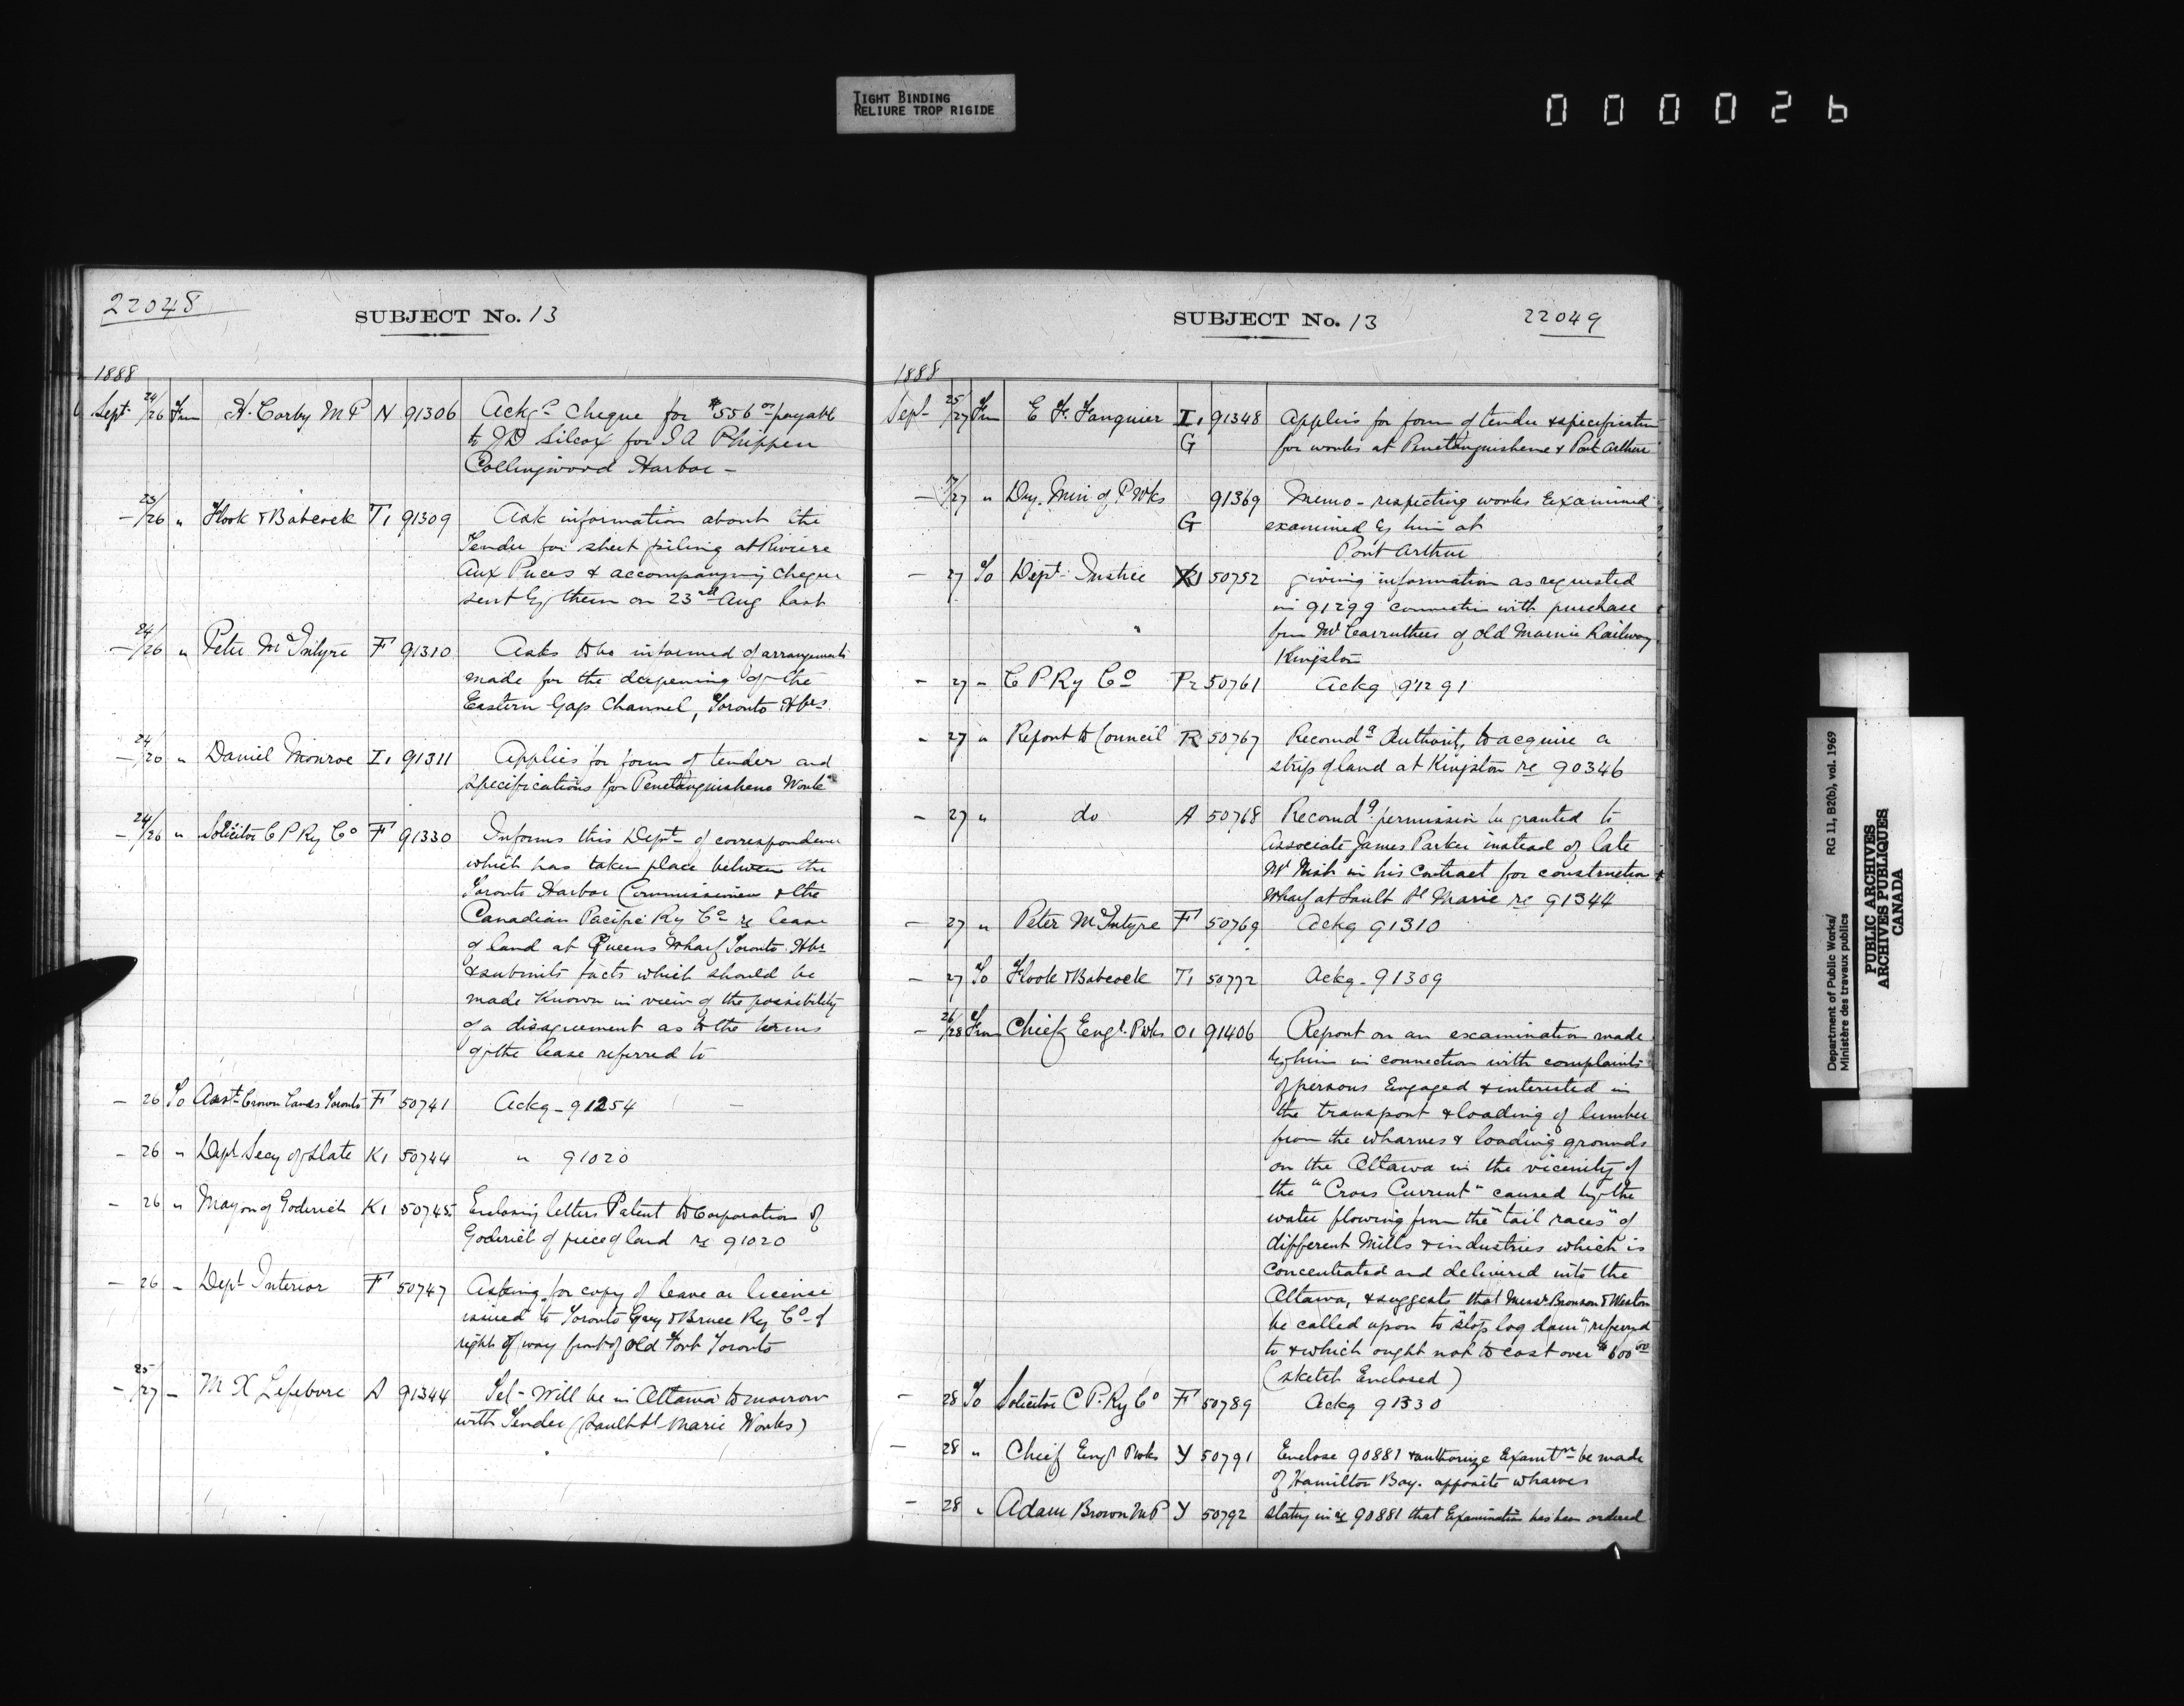 TIGHT BINDING
RELIURE TROP RIGIDE
000026
22048
SUBJECT No. 13
1888
Sept 24/26 Frm H. Corby M P N 91306 Ackg cheque for $556 00 payable
to J D Silcox for J A Phippen
Collingwood Harbor -
- 23/26 " Hook & Babcock T1 91309 Ask information about the
Tender for sheet piling at Riviere
Aux Puces & accompanying cheque
sent by them on 23rd Aug last
- 24/26 " Peter McIntyre F 91310 Asks to be informed of arrangements
made for the deepening of the
Eastern Gap Channel, Toronto Hbr
- 24/26 " Daniel Monroe I1 91311 Applies for form of tender and
specifications for Penetanguishene Works
- 24/26 " Solicitor C P Ry Co F 91330 Informs this Dept of correspondence
which has taken place between the
Toronto Harbor Commissioner & the
Canadian Pacific Ry Co re lease
of land at Queens Wharf Toronto Hbr
& submits facts which should be
made known in view of the possibility
of a disagreement as to the terms
of the lease referred to
- 26 To Asst Crown Lands Toronto F 50741 Ackg - 91254
- 26 " Dept Secy of State K1 50744 " 91020
- 26 " Mayor of Goderich K1 50745 Enclosing letters Patent to Corporation of
Goderich of piece of land re 91020
- 26 " Dept Interior F 50747 Asking for copy of lease or license
issued to Toronto Grey & Bruce Ry Co of
right of way front of Old Fort Toronto
- 25/27 - M X Lefebvre A 91344 Tel - Will be in Ottawa tomorrow
with Tender (Sault St Marie Works)
SUBJECT No. 13
22049
1888
Sept 25/27 Frm E F Fauquier I1 91348 Applies for form of tender & specification
G for works at Penetanguishene & Port Arthur
- /27 " Dep. Min of P Wks 91369 Memo - respecting works Examined
G examined by him at
Port Arthur
- 27 To Dept Justice K1 50752 giving information as requested
in 91299 connection with purchase
from Mr Carruthers of old Marine Railway
Kingston
- 27 - C P Ry Co P2 50761 Ackg 91291
- 27 " Report to Council R 50767 Recomdg Authority to acquire a
strip of land at Kingston re 90346
- 27 " do A 50768 Recomdg permission be granted to
Associate James Parker instead of late
Mr Nish in his Contract for construction
Wharf at Sault St Marie re 91344
- 27 " Peter McIntyre F 50769 Ackg 91310
- 27 To Hook & Babcock T1 50772 Ackg - 91309
- 26/28 Frm Chief Engr. P Wks O1 91406 Report on an examination made
by him in connection with complaints
of persons Engaged & interested in
the transport & loading of lumber
from the wharves & loading grounds
on the Ottawa in the vicinity of
the "Cross Current" caused by the
water flowing from the "tail races" of
different Mills & industries which is
concentrated and delivered into the
Ottawa, & suggests that Messrs Bronson & Weston
be called upon to "stop log dam" referred
to & which ought not to cost over $600 00
(sketch Enclosed)
- 28 To Solicitor C P. Ry Co F 50789 Ackg 91330
- 28 " Chief Engr P Wks Y 50791 Enclose 90881 & authorize Examtn be made
of Hamilton Bay. opposite wharves
- 28 " Adam Brown M P Y 50792 Stating in re 90881 that Examination has been ordered
Department of Public Works/
Ministère des travaux publics
RG 11, B2(b), vol. 1969
PUBLIC ARCHIVES
ARCHIVES PUBLIQUES
CANADA